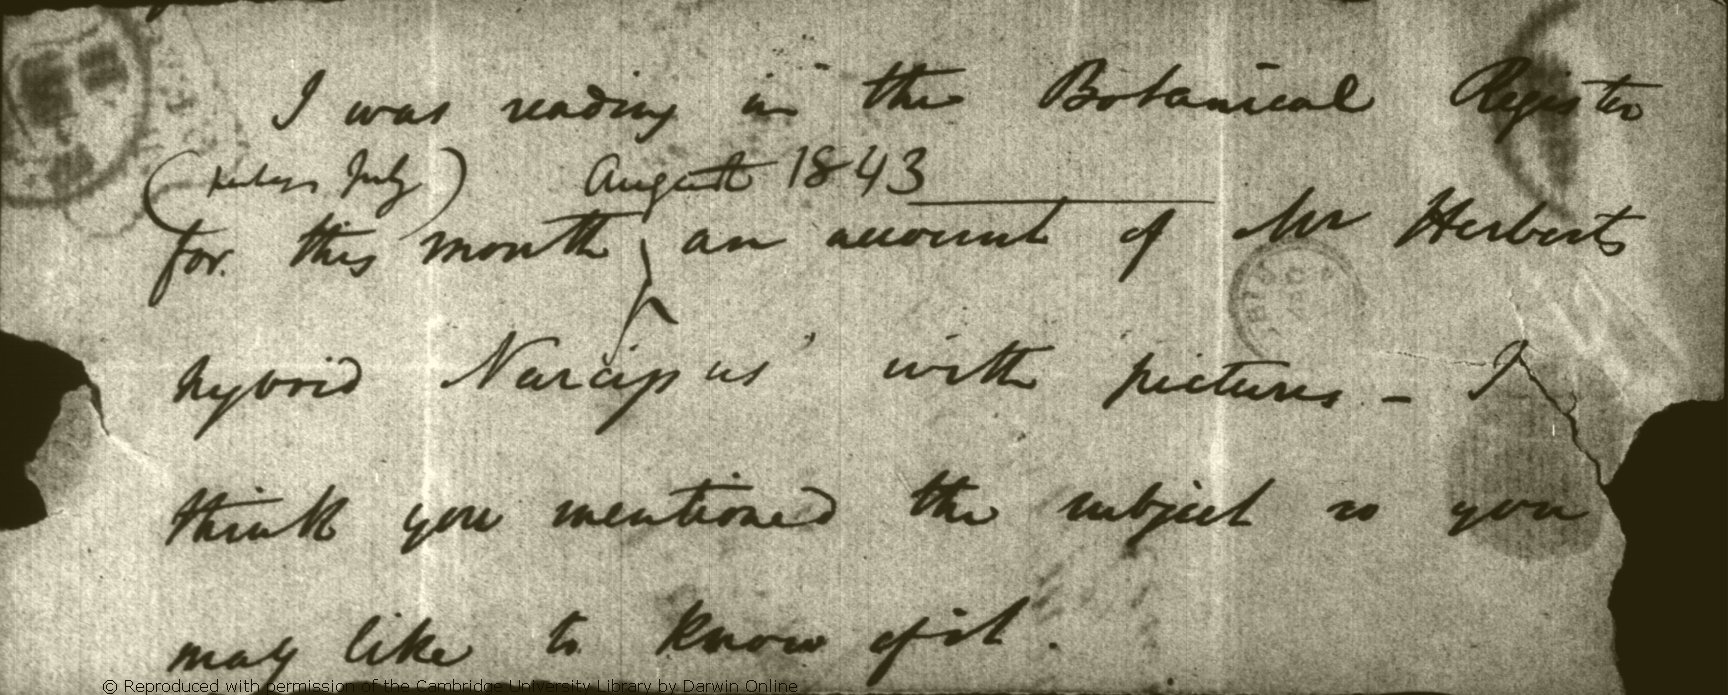 I was reading in the Botanical Register
(perhaps July) August 1843
for this month, an account of Mr Herberts
hybrid Narcissus' with pictures — I
think you mentioned the subject so you
may like to know of it.
© Reproduced with permission of the Cambridge University Library by Darwin Online